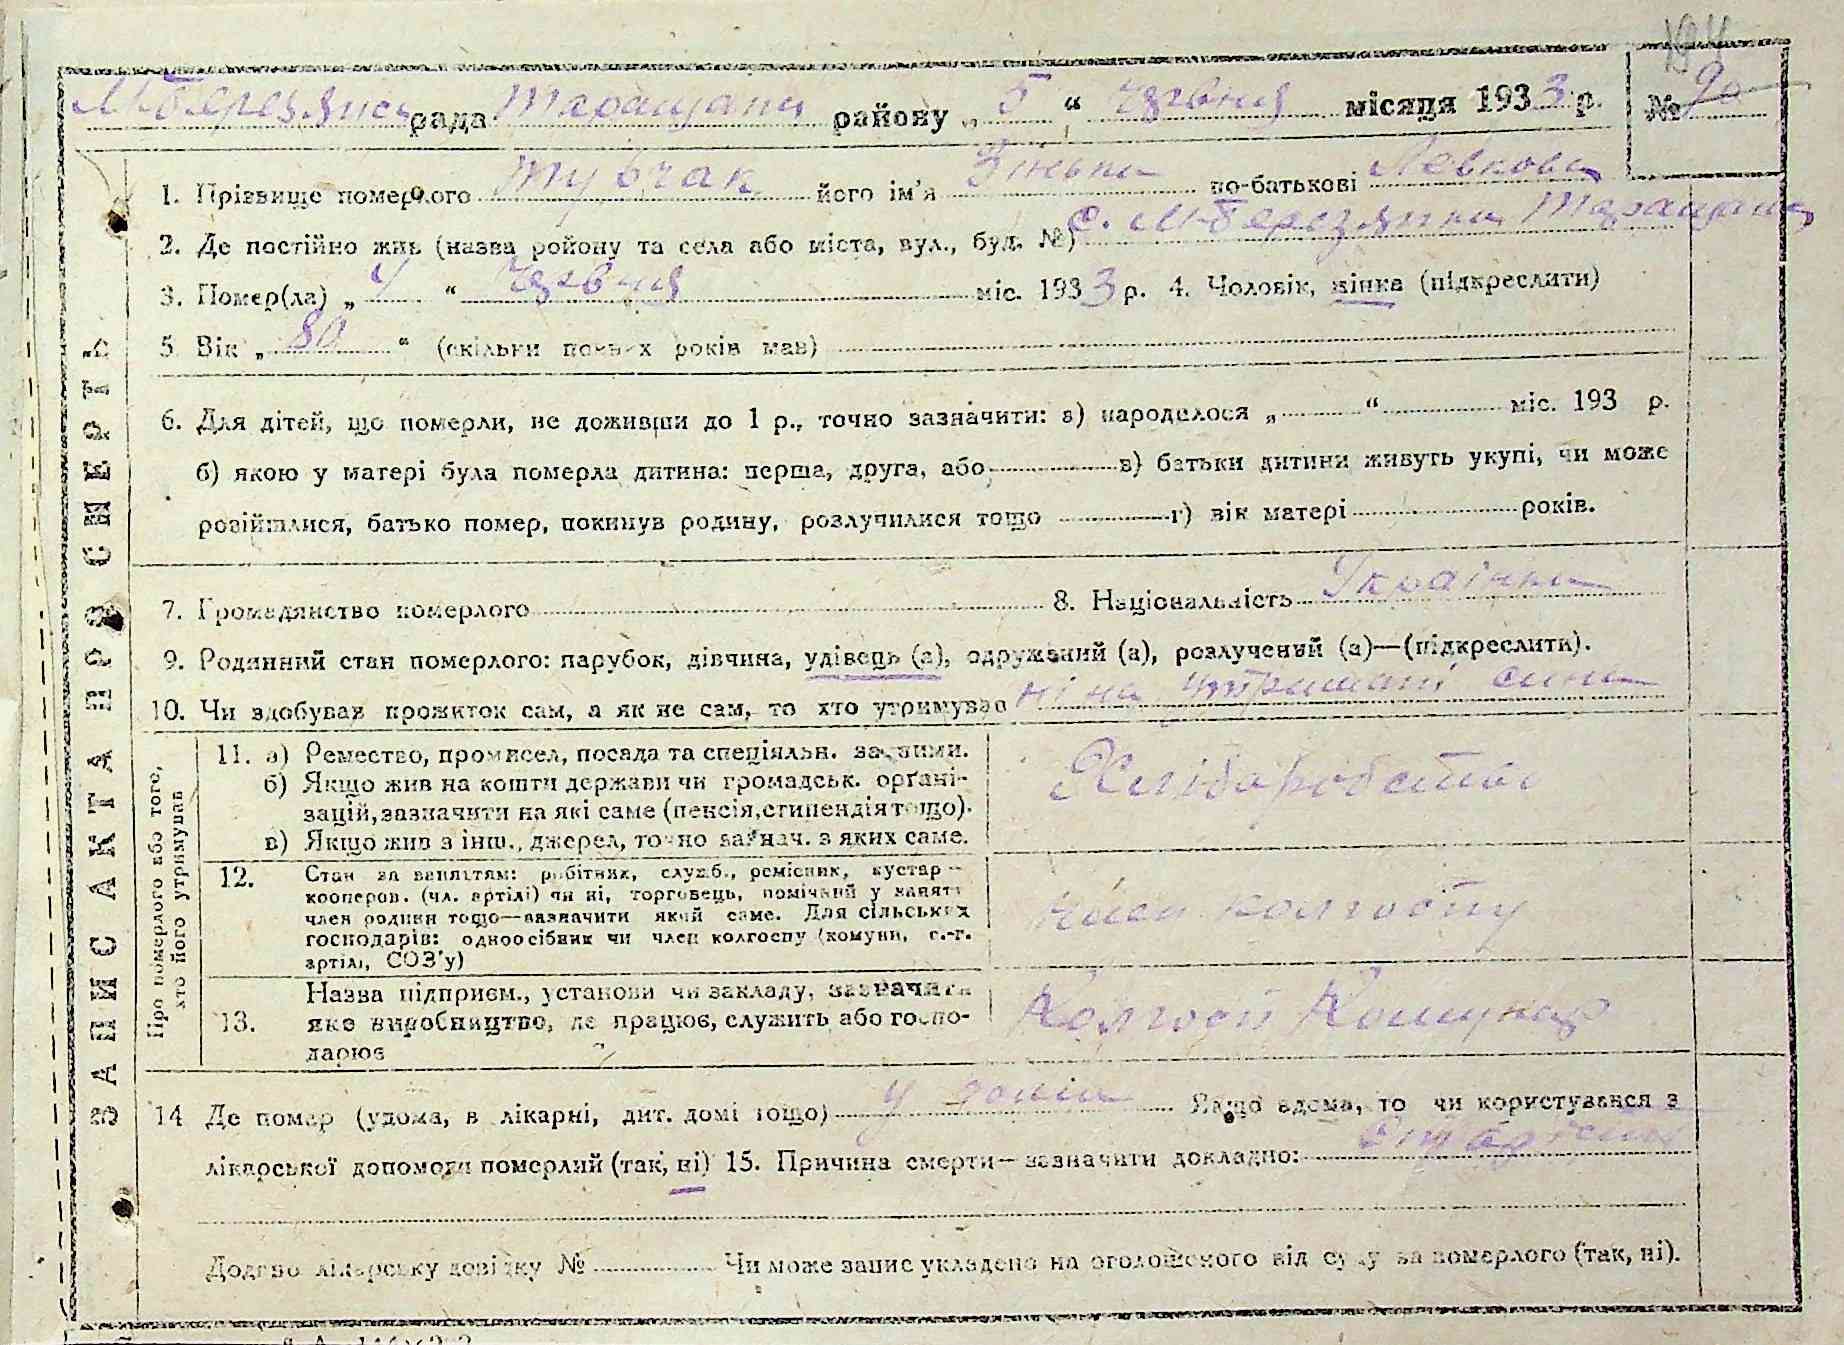 194
М-Березянська рада Таращанськ району „ 5 “ червня місяця 1933 р. № 90
1. Прізвище померлого Тубчак його ім'я Зінька по-батькові Левкова
2. Де постійно жив (назва району та села або міста, вул., буд. №) с. М-Березянка Таращанськ
3. Помер(ла) „ 4 “ червня міс. 1933 р. 4. Чоловік, жінка (підкреслити)
5. Вік „ 80 “ (скільки повних років мав)
6. Для дітей, що померли, не доживши до 1 р., точно зазначити: а) народилося „ “ міс. 193 р.
б) якою у матері була померла дитина: перша, друга, або в) батьки дитини живуть укупі, чи може
розійшлися, батько помер, покинув родину, розлучилися тощо г) вік матері років.
7. Громадянство померлого 8. Національність Українка
9. Родинний стан померлого: парубок, дівчина, удівець (а), одружений (а), розлучений (а)—(підкреслити).
10. Чи здобував прожиток сам, а як не сам, то хто утримував ні на утриманні сина
ЗАПИС АКТА ПРО СМЕРТЬ
Про померлого або того,
хто його утримував
11. а) Ремество, промисел, посада та спеціяльн. заняттями.
б) Якщо жив на кошти держави чи громадськ. організацій, зазначити на які саме (пенсія, стипендія тощо).
в) Якщо жив з інш., джерел, точно зазнач. з яких саме.
Хліборобство
12. Стан за заняттям: робітник, служб., ремісник, кустар—
кооперов. (чл. артілі) чи ні, торговець, помічний у занятт
член родини тощо—зазначити який саме. Для сільських
господарів: одноосібник чи член колгоспу (комуни, с.-г.
артілі, СОЗ'у)
Член колгоспу
13. Назва підприєм., установи чи закладу, зазначити
яке виробництво, де працює, служить або господарює
Колгосп Комунар
14 Де помер (удома, в лікарні, дит. домі тощо) у домі Якщо вдома, то чи користувався з
лікарської допомоги померлий (так, ні) 15. Причина смерти—зазначити докладно: От старости
Додано лікарську довідку № Чи може запис укладено на оголошеного від суду за померлого (так, ні).